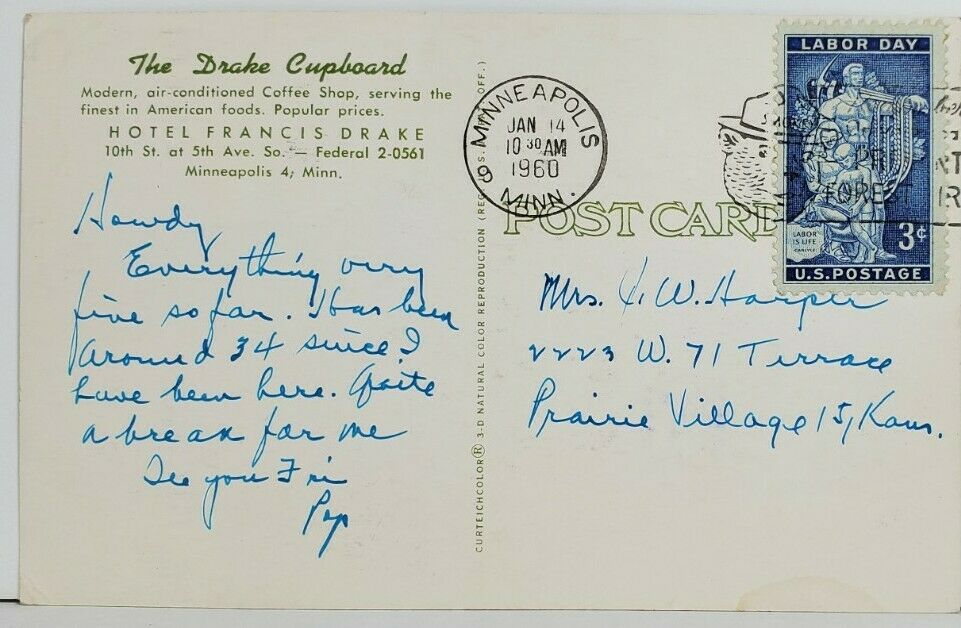 The Drake Cupboard
Modern, air-conditioned Coffee Shop, serving the
finest in American foods. Popular prices.
HOTEL FRANCIS DRAKE
10th St. at 5th Ave. So. — Federal 2-0561
Minneapolis 4, Minn.
Howdy
Everything very
fine so far. It has been
around 34 since I
have been here. Quite
a break for me
See you Fri
Pop
CURTEICHCOLOR® 3-D NATURAL COLOR REPRODUCTION (REG. U.S. PAT. OFF.)
MINNEAPOLIS
JAN 14
10 30 AM
1960
9 MINN.
POST CARD
LABOR DAY
LABOR
IS LIFE
CARLYLE
3¢
U.S. POSTAGE
FOREST
Mrs. H. W. Harper
2223 W. 71 Terrace
Prairie Village 15, Kans.